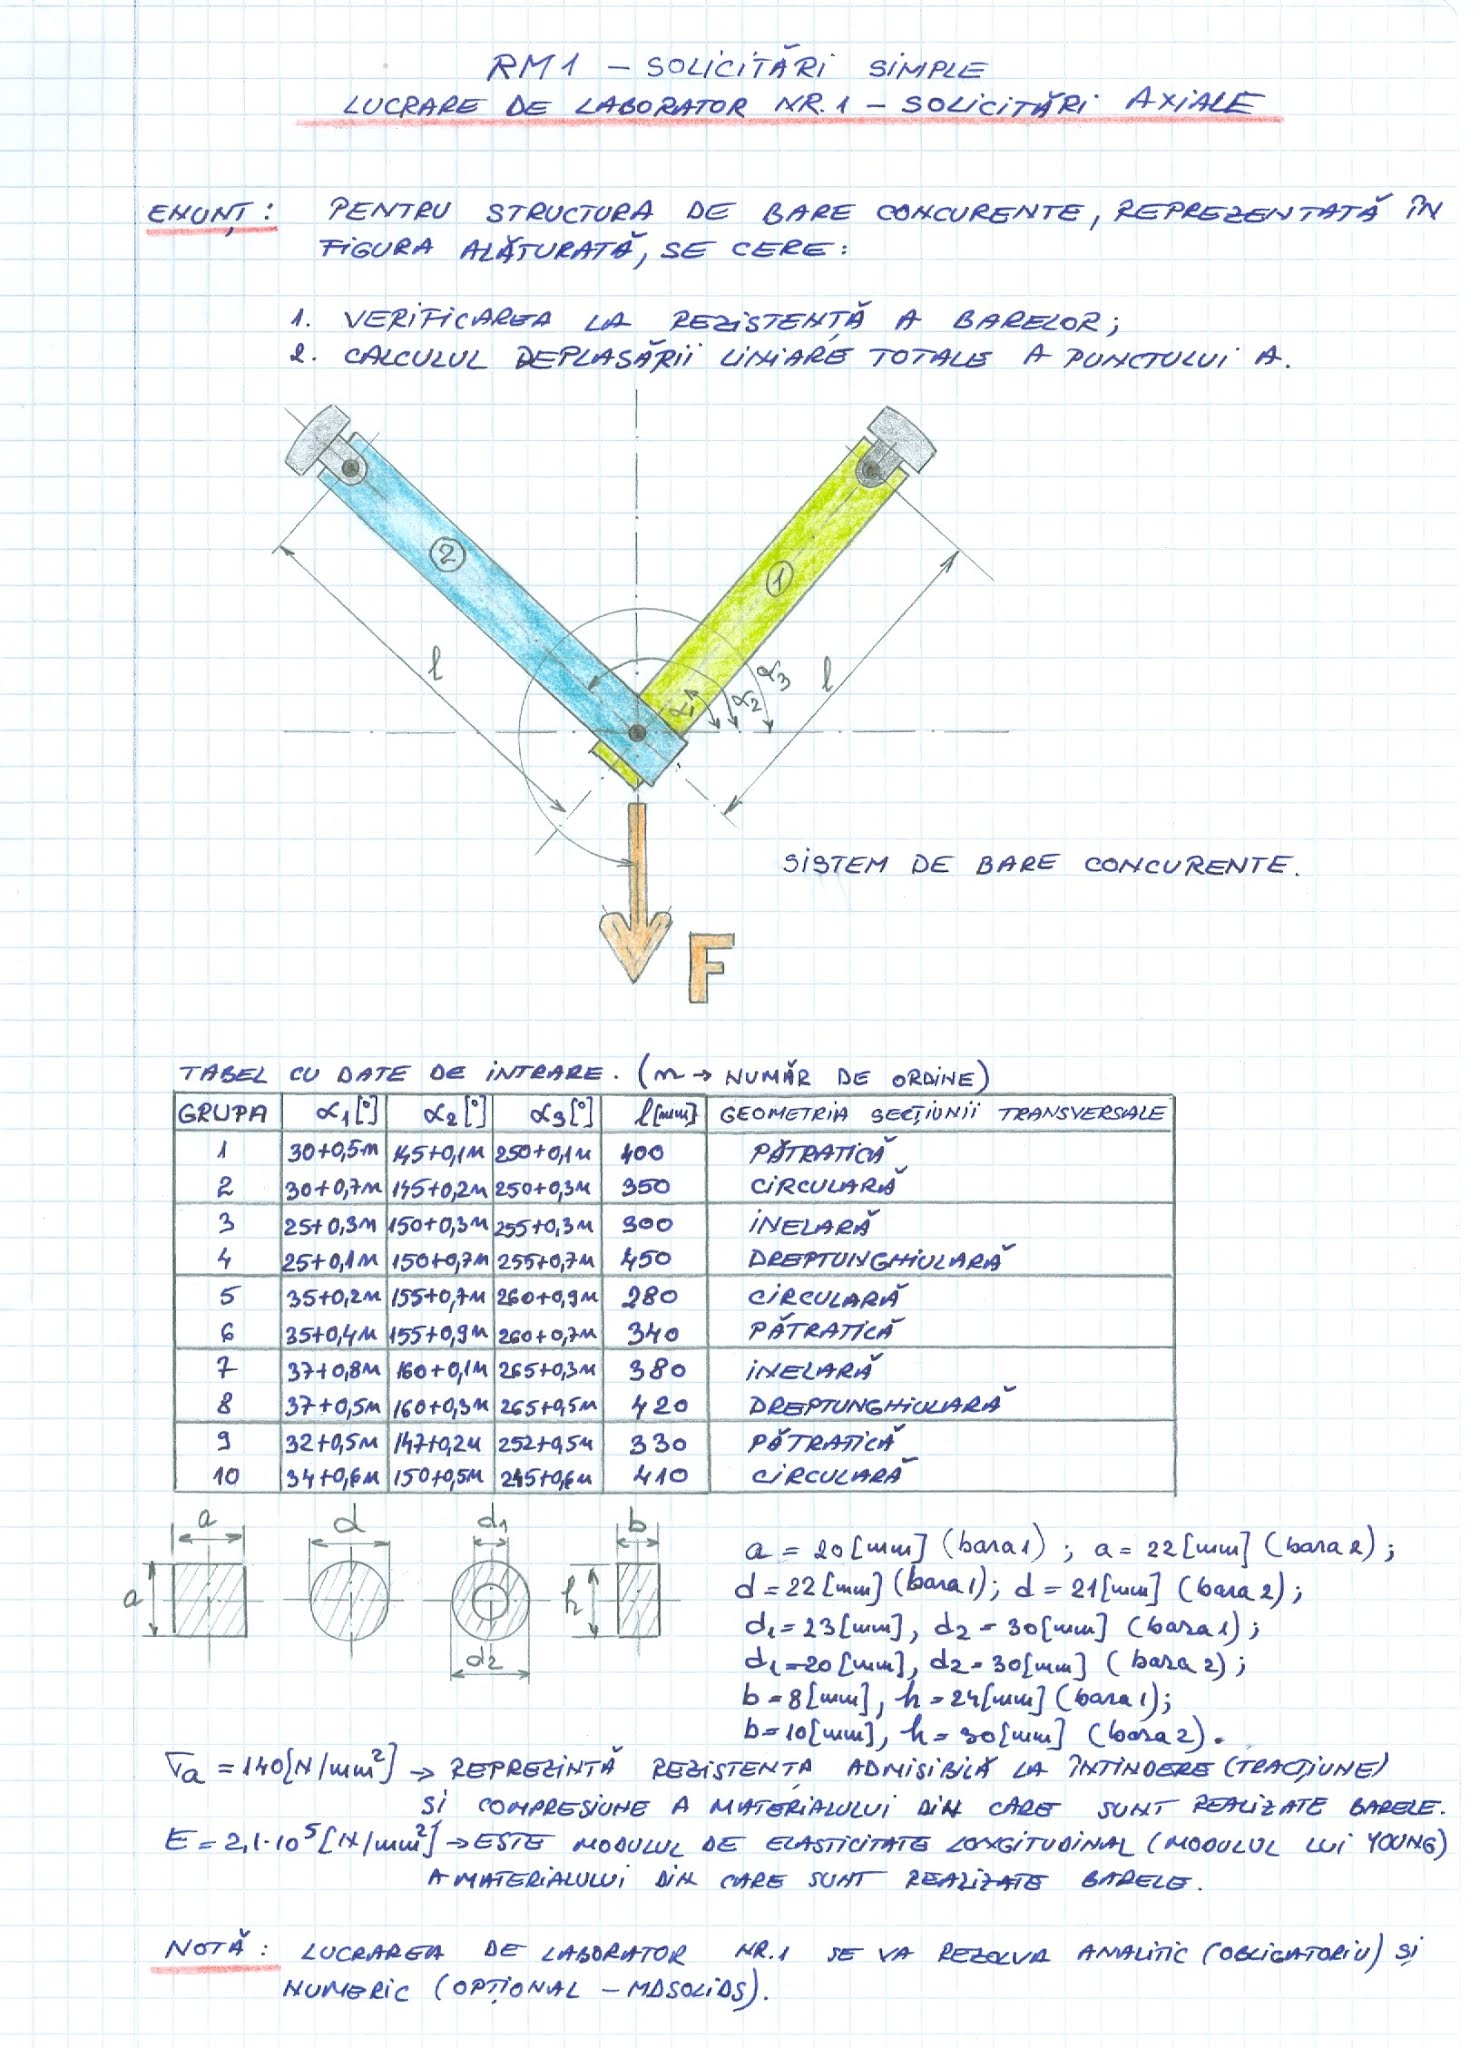 RM1 – SOLICITĂRI SIMPLE
LUCRARE DE LABORATOR NR.1 – SOLICITĂRI AXIALE
ENUNȚ: PENTRU STRUCTURA DE BARE CONCURENTE, REPREZENTATĂ ÎN
FIGURA ALĂTURATĂ, SE CERE:
1. VERIFICAREA LA REZISTENȚĂ A BARELOR;
2. CALCULUL DEPLASĂRII LINIARE TOTALE A PUNCTULUI A.
2
1
l
l
α1
α2
α3
SISTEM DE BARE CONCURENTE.
F
TABEL CU DATE DE INTRARE. (n → NUMĂR DE ORDINE)
GRUPA α1[°] α2[°] α3[°] l[mm] GEOMETRIA SECȚIUNII TRANSVERSALE
1 30+0,5n 145+0,1n 250+0,1n 400 PĂTRATICĂ
2 30+0,7n 145+0,2n 250+0,3n 350 CIRCULARĂ
3 25+0,3n 150+0,3n 255+0,3n 300 INELARĂ
4 25+0,1n 150+0,7n 255+0,7n 450 DREPTUNGHIULARĂ
5 35+0,2n 155+0,7n 260+0,9n 280 CIRCULARĂ
6 35+0,4n 155+0,9n 260+0,7n 340 PĂTRATICĂ
7 37+0,8n 160+0,1n 265+0,3n 380 INELARĂ
8 37+0,5n 160+0,3n 265+0,5n 420 DREPTUNGHIULARĂ
9 32+0,5n 147+0,2n 252+0,5n 330 PĂTRATICĂ
10 34+0,6n 150+0,5n 245+0,6n 410 CIRCULARĂ
a d d1 b
a h
d2
a = 20[mm] (bara 1); a = 22[mm] (bara 2);
d = 22[mm] (bara 1); d = 21[mm] (bara 2);
d1 = 23[mm], d2 = 30[mm] (bara 1);
d1 = 20[mm], d2 = 30[mm] (bara 2);
b = 8[mm], h = 24[mm] (bara 1);
b = 10[mm], h = 30[mm] (bara 2).
σa = 140[N/mm²] → REPREZINTĂ REZISTENȚA ADMISIBILĂ LA ÎNTINDERE (TRACȚIUNE)
ȘI COMPRESIUNE A MATERIALULUI DIN CARE SUNT REALIZATE BARELE.
E = 2,1·10⁵[N/mm²] → ESTE MODULUL DE ELASTICITATE LONGITUDINAL (MODULUL LUI YOUNG)
A MATERIALULUI DIN CARE SUNT REALIZATE BARELE.
NOTĂ: LUCRAREA DE LABORATOR NR.1 SE VA REZOLVA ANALITIC (OBLIGATORIU) ȘI
NUMERIC (OPȚIONAL – MDSOLIDS).